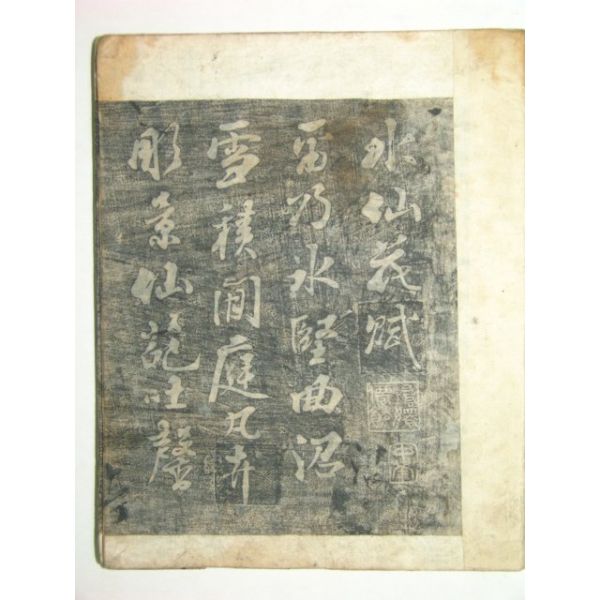 水仙花賦
當乃氷堅曲沼
雪積閒庭凡卉
彫景仙葩吐馨